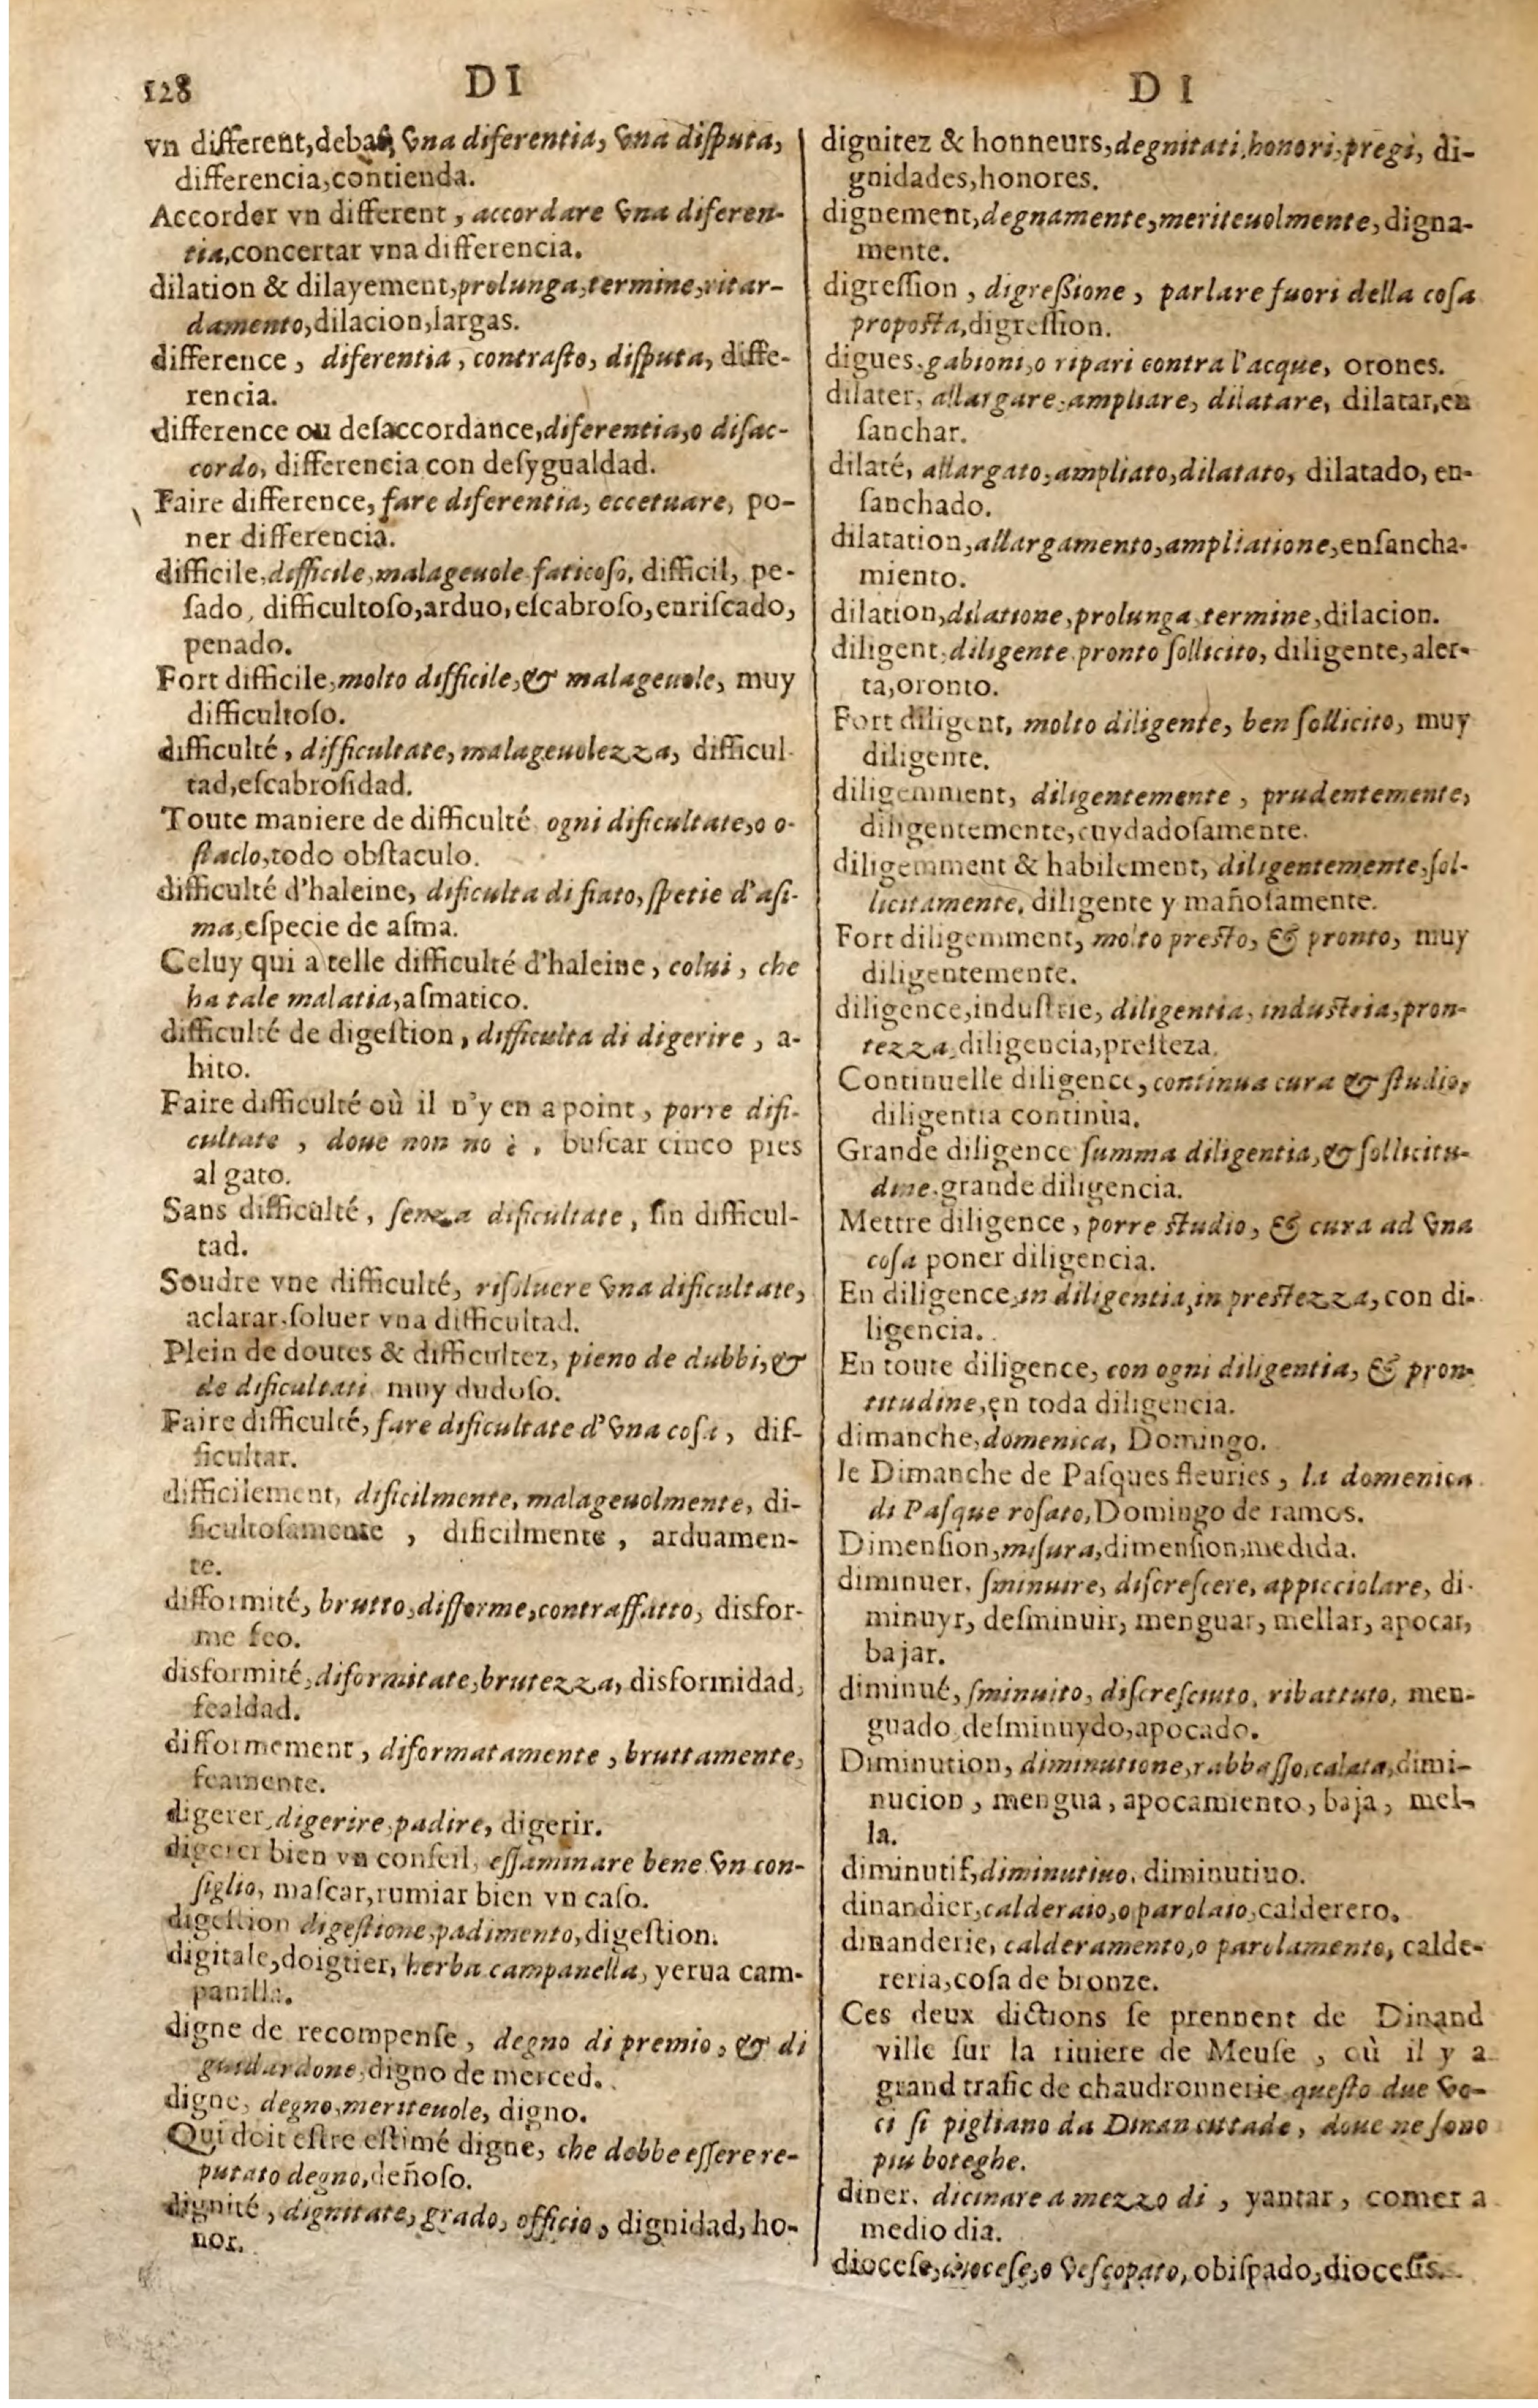 128
DI
DI
vn different, debat, vna diferentia, vna disputa,
differencia, contienda.
Accorder vn different, accordare vna diferen-
tia, concertar vna differencia.
dilation & dilayement, prolunga, termine, ritar-
damento, dilacion, largas.
difference, diferentia, contrasto, disputa, diffe-
rencia.
difference ou desaccordance, diferentia, o disac-
cordo, differencia con desygualdad.
Faire difference, fare diferentia, eccetuare, po-
ner differencia.
difficile, difficile, malageuole faticoso, difficil, pe-
sado, difficultoso, arduo, escabroso, enriscado,
penado.
Fort difficile, molto difficile, & malageuole, muy
difficultoso.
difficulté, difficultate, malageuolezza, difficul-
tad, escabrosidad.
Toute maniere de difficulté ogni dificultate, o o-
staclo, todo obstaculo.
difficulté d'haleine, dificulta di fiato, spetie d'asi-
ma, especie de asma.
Celuy qui a telle difficulté d'haleine, colui, che
ha tale malatia, asmatico.
difficulté de digestion, difficulta di digerire, a-
hito.
Faire difficulté où il n'y en a point, porre difi-
cultate, doue non no è, buscar cinco pies
al gato.
Sans difficulté, senza dificultate, sin difficul-
tad.
Soudre vne difficulté, risoluere vna dificultate,
aclarar, soluer vna difficultad.
Plein de doutes & difficultez, pieno de dubbi, &
de dificultati muy dudoso.
Faire difficulté, fare dificultate d'vna cosa, dif-
ficultar.
difficilement, dificilmente, malageuolmente, di-
ficultosamente, dificilmente, arduamen-
te.
difformité, brutto, difforme, contraffatto, disfor-
me feo.
disformité, diformitate, brutezza, disformidad,
fealdad.
difformement, diformatamente, bruttamente,
feamente.
digerer, digerire, padire, digerir.
digerer bien vn conseil, essaminare bene vn con-
siglio, mascar, rumiar bien vn caso.
digestion digestione, padimento, digestion.
digitale, doigtier, herba campanella, yerua cam-
panilla.
digne de recompense, degno di premio, & di
guidardone, digno de merced.
digne, degno, meriteuole, digno.
Qui doit estre estimé digne, che debbe essere re-
putato degno, deñoso.
dignité, dignitate, grado, officio, dignidad, ho-
nor.
dignitez & honneurs, degnitati, honori, pregi, di-
gnidades, honores.
dignement, degnamente, meriteuolmente, digna-
mente.
digression, digreßione, parlare fuori della cosa
proposta, digression.
digues, gabioni, o ripari contra l'acque, orones.
dilater, allargare, ampliare, dilatare, dilatar, en
sanchar.
dilaté, allargato, ampliato, dilatato, dilatado, en-
sanchado.
dilatation, allargamento, ampliatione, ensancha-
miento.
dilation, dilatione, prolunga termine, dilacion.
diligent, diligente pronto sollicito, diligente, aler-
ta, oronto.
Fort diligent, molto diligente, ben sollicito, muy
diligente.
diligemment, diligentemente, prudentemente,
diligentemente, cuydadosamente.
diligemment & habilement, diligentemente, sol-
licitamente, diligente y mañosamente.
Fort diligemment, molto presto, & pronto, muy
diligentemente.
diligence, industrie, diligentia, industria, pron-
tezza, diligencia, presteza.
Continuelle diligence, continua cura & studio,
diligentia continùa.
Grande diligence summa diligentia, & sollicitu-
dine. grande diligencia.
Mettre diligence, porre studio, & cura ad vna
cosa poner diligencia.
En diligence, in diligentia, in prestezza, con di-
ligencia.
En toute diligence, con ogni diligentia, & pron-
titudine, en toda diligencia.
dimanche, domenica, Domingo.
le Dimanche de Pasques fleuries, la domenica
di Pasque rosato, Domingo de ramos.
Dimension, misura, dimension, medida.
diminuer, sminuire, discrescere, appicciolare, di-
minuyr, desminuir, menguar, mellar, apocar,
bajar.
diminué, sminuito, discresciuto, ribattuto, men-
guado desminuydo, apocado.
Diminution, diminutione, rabbasso, calata, dimi-
nucion, mengua, apocamiento, baja, mel-
la.
diminutif, diminutiuo, diminutiuo.
dinandier, calderaio, o parolaio, calderero.
dinanderie, calderamento, o parolamento, calde-
reria, cosa de bronze.
Ces deux dictions se prennent de Dinand
ville sur la riuiere de Meuse, où il y a
grand trafic de chaudronnerie questo due vo-
ci si pigliano da Dinan cittade, doue ne sono
piu boteghe.
diner, dicinare a mezzo di, yantar, comer a
medio dia.
diocese, diocese, o vescopato, obispado, diocesis.